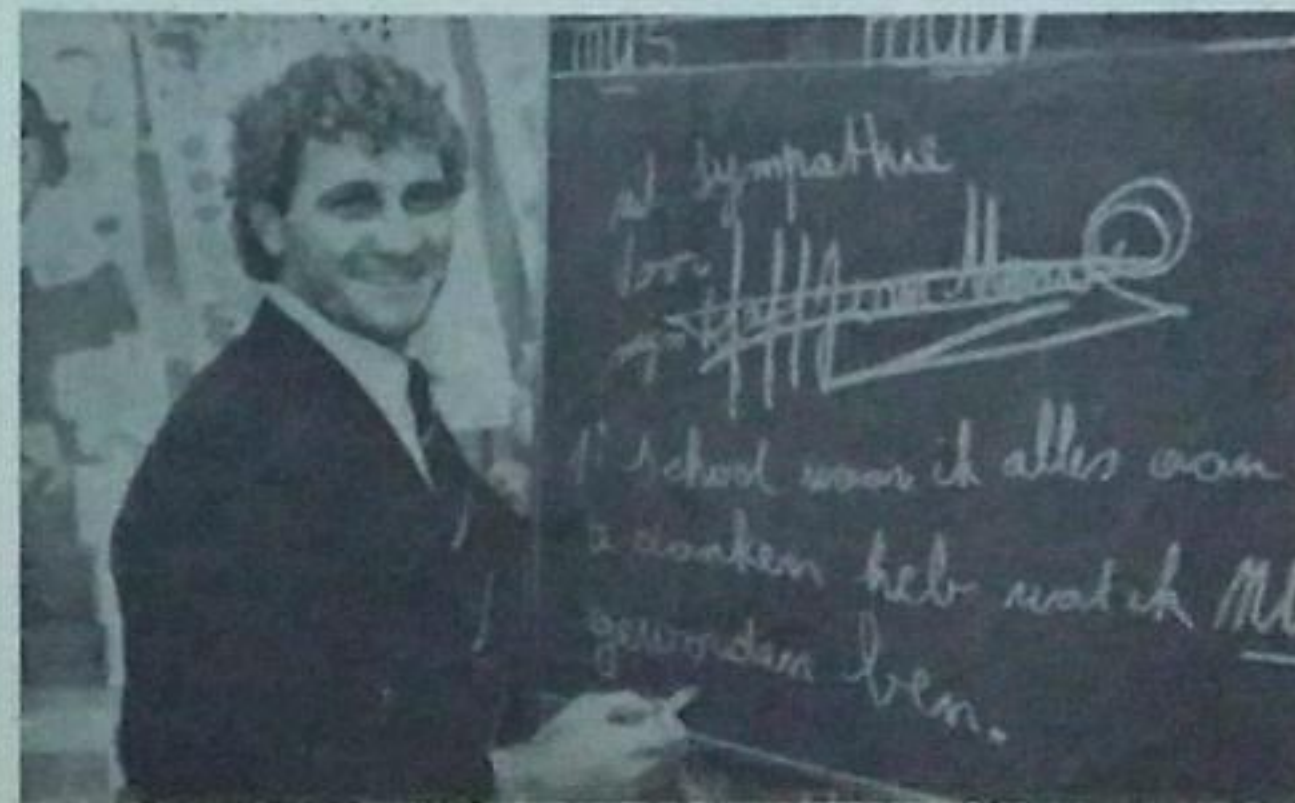 mus muur
sympathie
voor
mijn
school waar ik alles aan
danken heb wat ik
geworden ben.